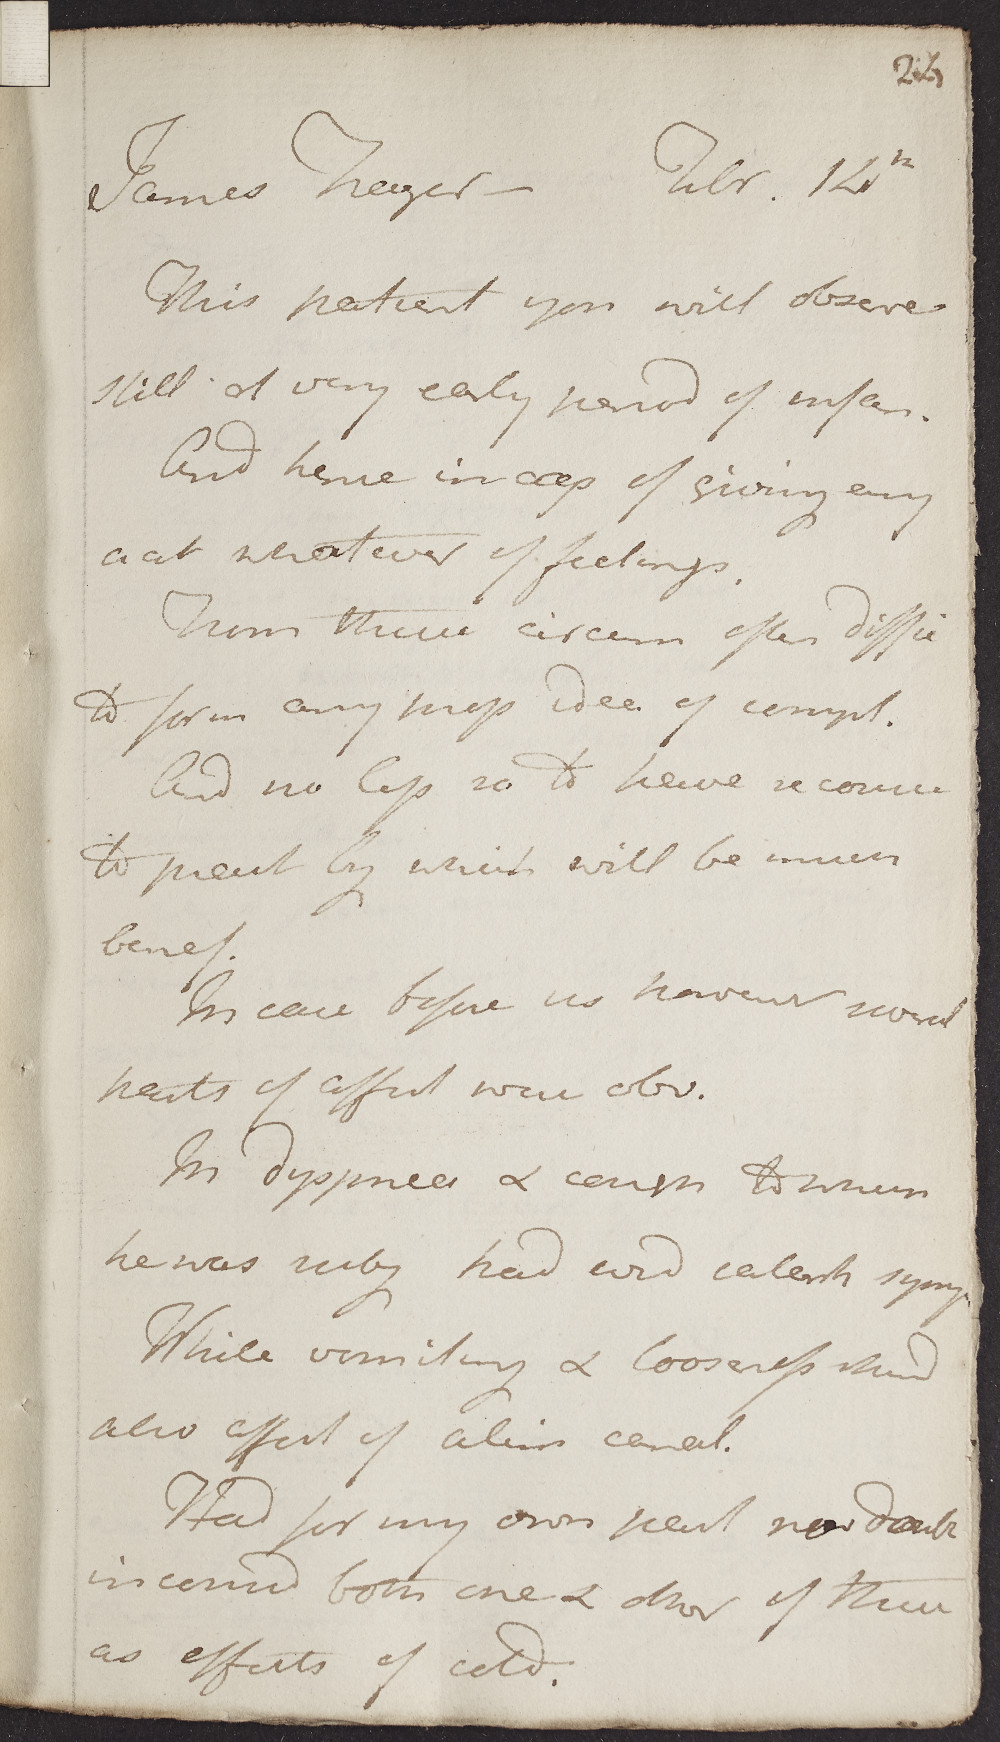 James Feager — Febr. 14th
This patient you will observe
still at very early period of infan.
And hence incap of giving any
act whatever of feelings.
From these circum often diffic
to form any prop idea of compl.
And no less so to have recourse
to pract by which will be much
benef.
In case before us however several
parts of affect were obv.
In dyspnea & cough to which
he was subj had evid catarrh symp.
While vomiting & looseness shewd
also affect of alim canal.
Had for my own part no doubt
in consid both one & other of these
as effects of cold.